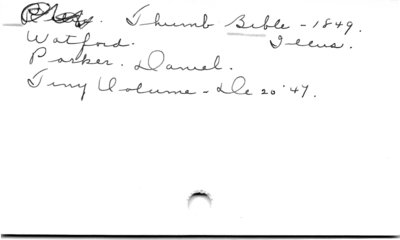 Thumb Bible - 1849.
Watford. Illus.
Parker. Daniel.
Tiny Volume - De 20 '47.